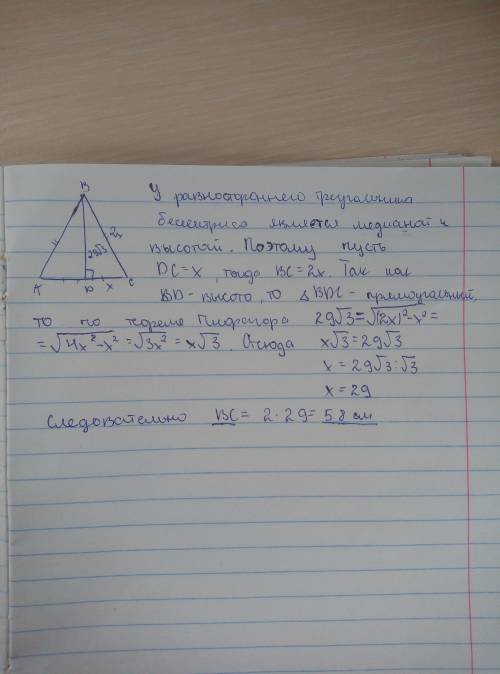 В
2x
29√3
А
D
x
С
У равностороннего треугольника
бессектриса является медианой и
высотой. Поэтому пусть
DC=x, тогда BC=2x. Так как
BD - высота, то △BDC - прямоугольный,
то по теореме Пифагора 29√3=√(2x)²-x²=
=√4x²-x²=√3x²=x√3. Отсюда x√3=29√3
x=29√3:√3
x=29
Следовательно BC= 2·29=58 см